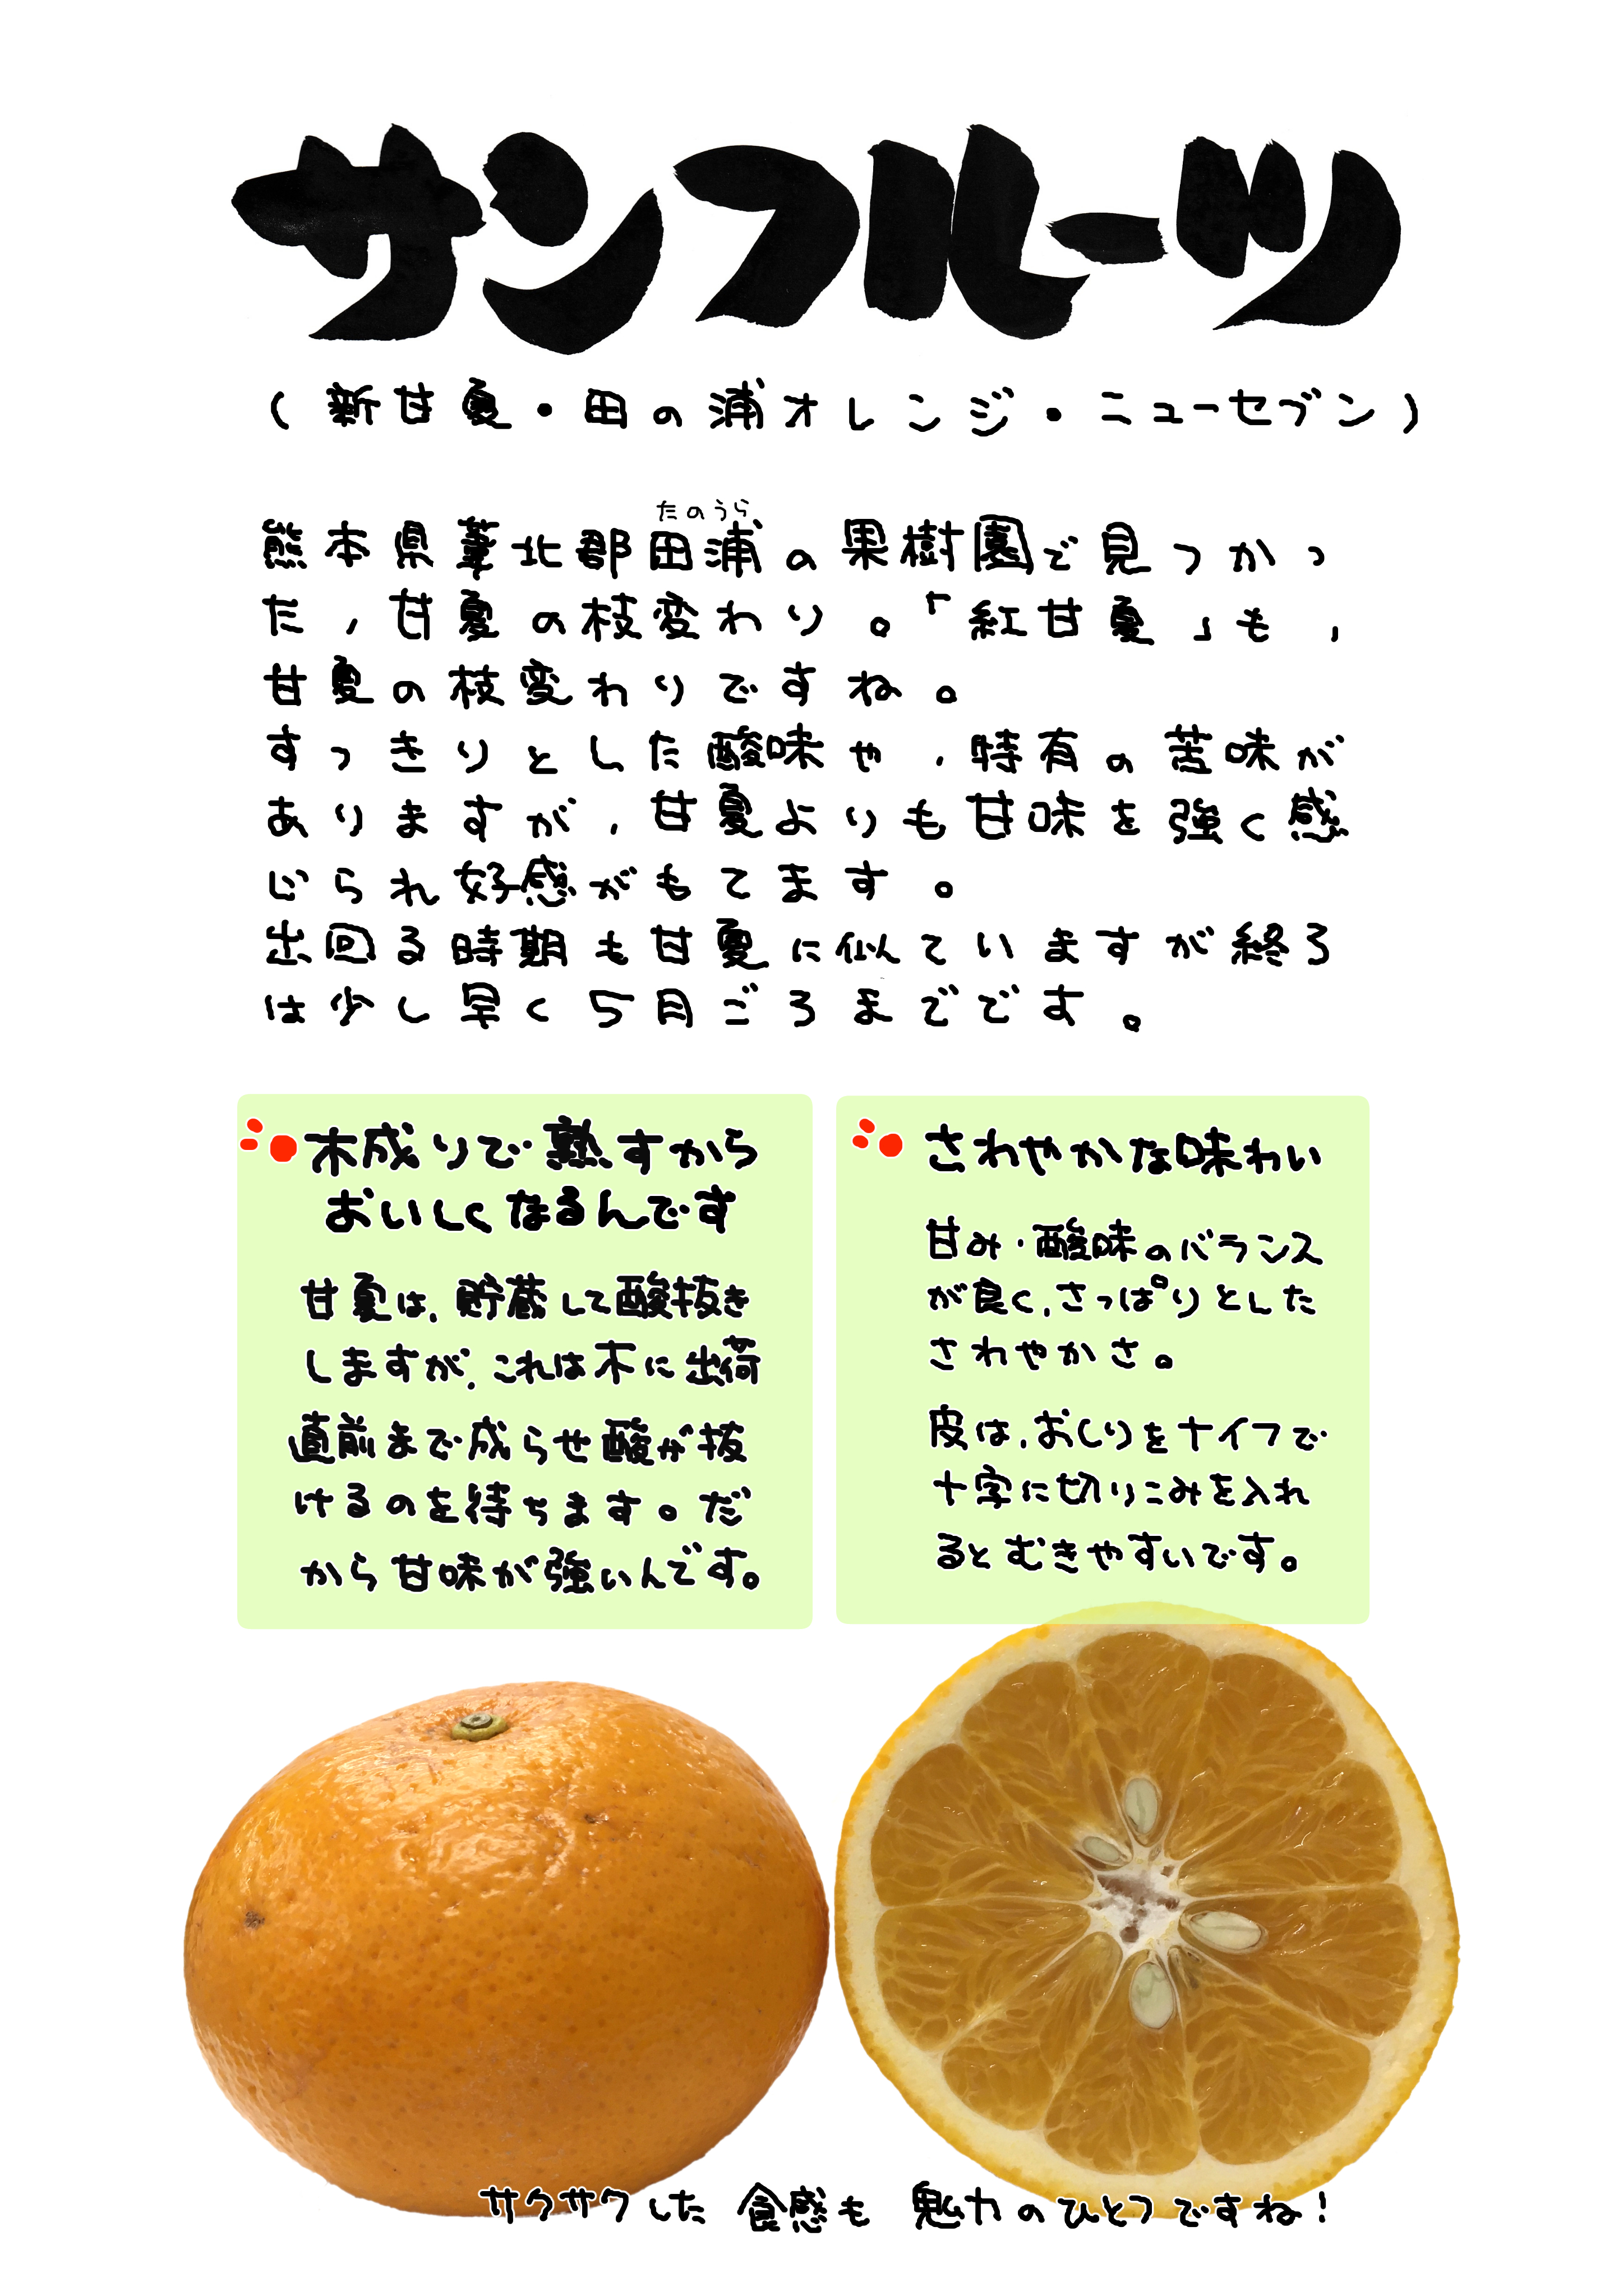 サンフルーツ
(新甘夏・田の浦オレンジ・ニューセブン)
たのうら
熊本県葦北郡田浦の果樹園で見つかっ
た、甘夏の枝変わり。「紅甘夏」も、
甘夏の枝変わりですね。
すっきりとした酸味や、特有の苦味が
ありますが、甘夏よりも甘味を強く感
じられ好感がもてます。
出回る時期も甘夏に似ていますが終ろ
は少し早く5月ごろまでです。
木成りで熟すから
おいしくなるんです
甘夏は、貯蔵して酸抜き
しますが、これは木に出荷
直前まで成らせ酸が抜
けるのを待ちます。だ
から甘味が強いんです。
さわやかな味わい
甘み・酸味のバランス
が良く、さっぱりとした
さわやかさ。
皮は、おしりをナイフで
十字に切りこみを入れ
るとむきやすいです。
サクサクした 食感も 魅力のひとつですね!